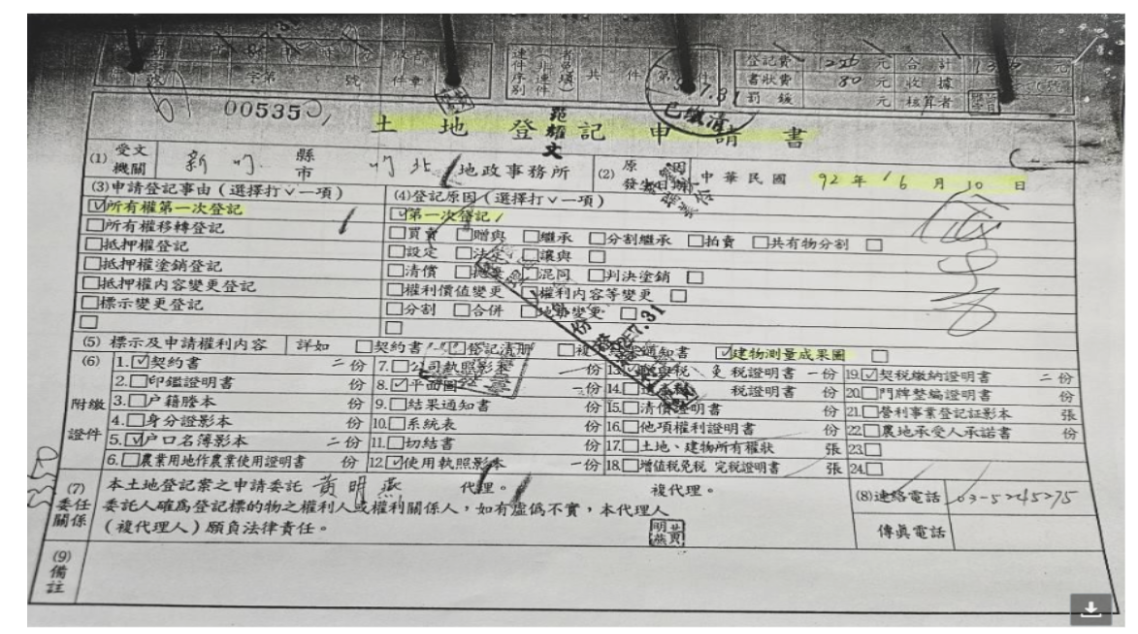 字第 號 件章
連件序別 (非連件者免填) 共 件 第 件
登記費 元 合計 元
書狀費 80 元 收據
罰鍰 元 核算者
00535
已繳清
土地登記申請書
(1) 受文機關 新竹 縣市 竹北 地政事務所 (2) 原因發生日期 中華民國 92 年 6 月 10 日
(3)申請登記事由(選擇打∨一項) (4)登記原因(選擇打∨一項)
☑所有權第一次登記 ☑第一次登記
☐所有權移轉登記 ☐買賣 ☐贈與 ☐繼承 ☐分割繼承 ☐拍賣 ☐共有物分割 ☐
☐抵押權登記 ☐設定 ☐法定 ☐讓與 ☐
☐抵押權塗銷登記 ☐清償 ☐拋棄 ☐混同 ☐判決塗銷 ☐
☐抵押權內容變更登記 ☐權利價值變更 ☐權利內容等變更 ☐
☐標示變更登記 ☐分割 ☐合併 ☐地目變更 ☐
☐ ☐
(5) 標示及申請權利內容 詳如 ☐契約書 ☐登記清冊 ☐複丈結果通知書 ☑建物測量成果圖 ☐
(6) 附繳證件
1.☑契約書 二份 7.☐公司執照影本 份 13.☑贈與稅 免 稅證明書 一份 19.☑契稅繳納證明書 二份
2.☐印鑑證明書 份 8.☑平面圖 二份 14.☐遺產稅 稅證明書 份 20.☐門牌整編證明書 份
3.☐戶籍謄本 份 9.☐結果通知書 份 15.☐清償證明書 份 21.☐營利事業登記証影本 張
4.☐身分證影本 份 10.☐系統表 份 16.☐他項權利證明書 份 22.☐農地承受人承諾書 份
5.☑戶口名簿影本 二份 11.☐切結書 份 17.☐土地、建物所有權狀 張 23.☐
6.☐農業用地作農業使用證明書 份 12.☑使用執照影本 一份 18.☐增值稅免稅 完稅證明書 張 24.☐
(7) 委任關係 本土地登記案之申請委託 黃明燕 代理。 複代理。
委託人確為登記標的物之權利人或權利關係人,如有虛偽不實,本代理人
(複代理人)願負法律責任。
(8)連絡電話 03-5245275
傳真電話
(9) 備註